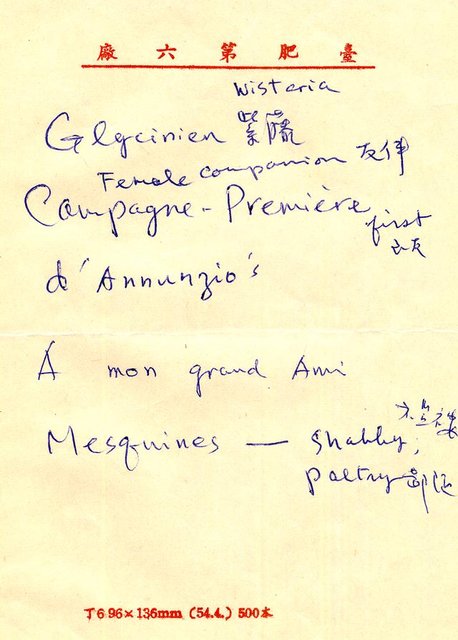 臺肥第六廠
Wisteria
Glycinien 紫藤
Female companion 友伴
Compagne-Première
first
d'Annunzio's
À mon grand Ami
Mesquines — shabby;
paltry
丁6 96×136mm (54.4.) 500本